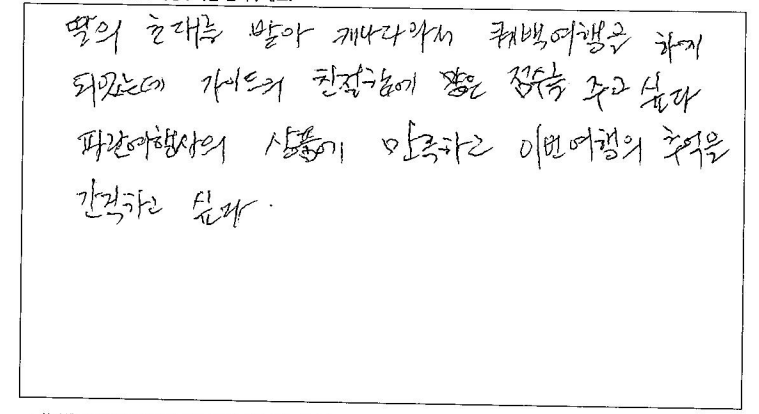 딸의 초대를 받아 캐나다와서 퀘백여행을 하게
되었는데 가이드의 친절함에 많은 점수를 주고 싶다
파란여행사의 상품에 만족하고 이번여행의 추억을
간직하고 싶다.